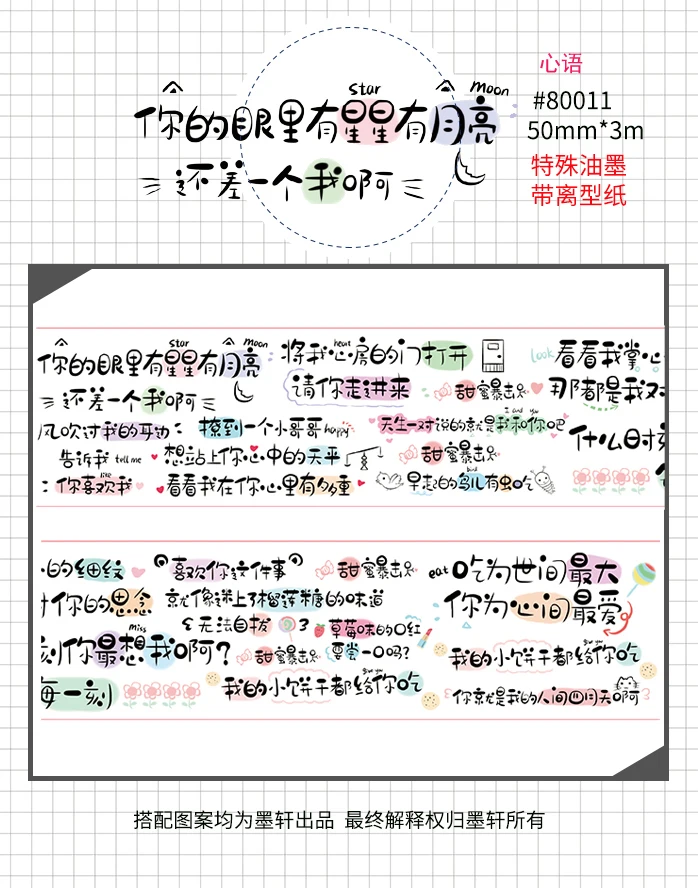 star
moon
你的眼里有星星有月亮
还差一个我啊
心语
#80011
50mm*3m
特殊油墨
带离型纸
star
moon
你的眼里有星星有月亮
还差一个我啊
heart
将我心房的门打开
请你走进来
look 看看我掌心
甜蜜暴击
那都是我对
风吹过我的耳边:
撩到一个小哥哥 happy
I and you
天生一对说的就是我和你吧
什么时
告诉我 tell me
想站上你心中的天平
甜蜜暴击
like
: 你喜欢我
看看我在你心里有多重
bird
早起的鸟儿有虫吃
的细纹
喜欢你这件事
甜蜜暴击
eat 吃为世间最大
你的思念
就像迷上了榴莲糖的味道
你为心间最爱
无法自拔
草莓味的口红
要尝一口吗?
miss
刻你最想我啊?
甜蜜暴击
我的小饼干都给你吃
每一刻
我的小饼干都给你吃
你就是我的人间四月天啊
搭配图案均为墨轩出品 最终解释权归墨轩所有